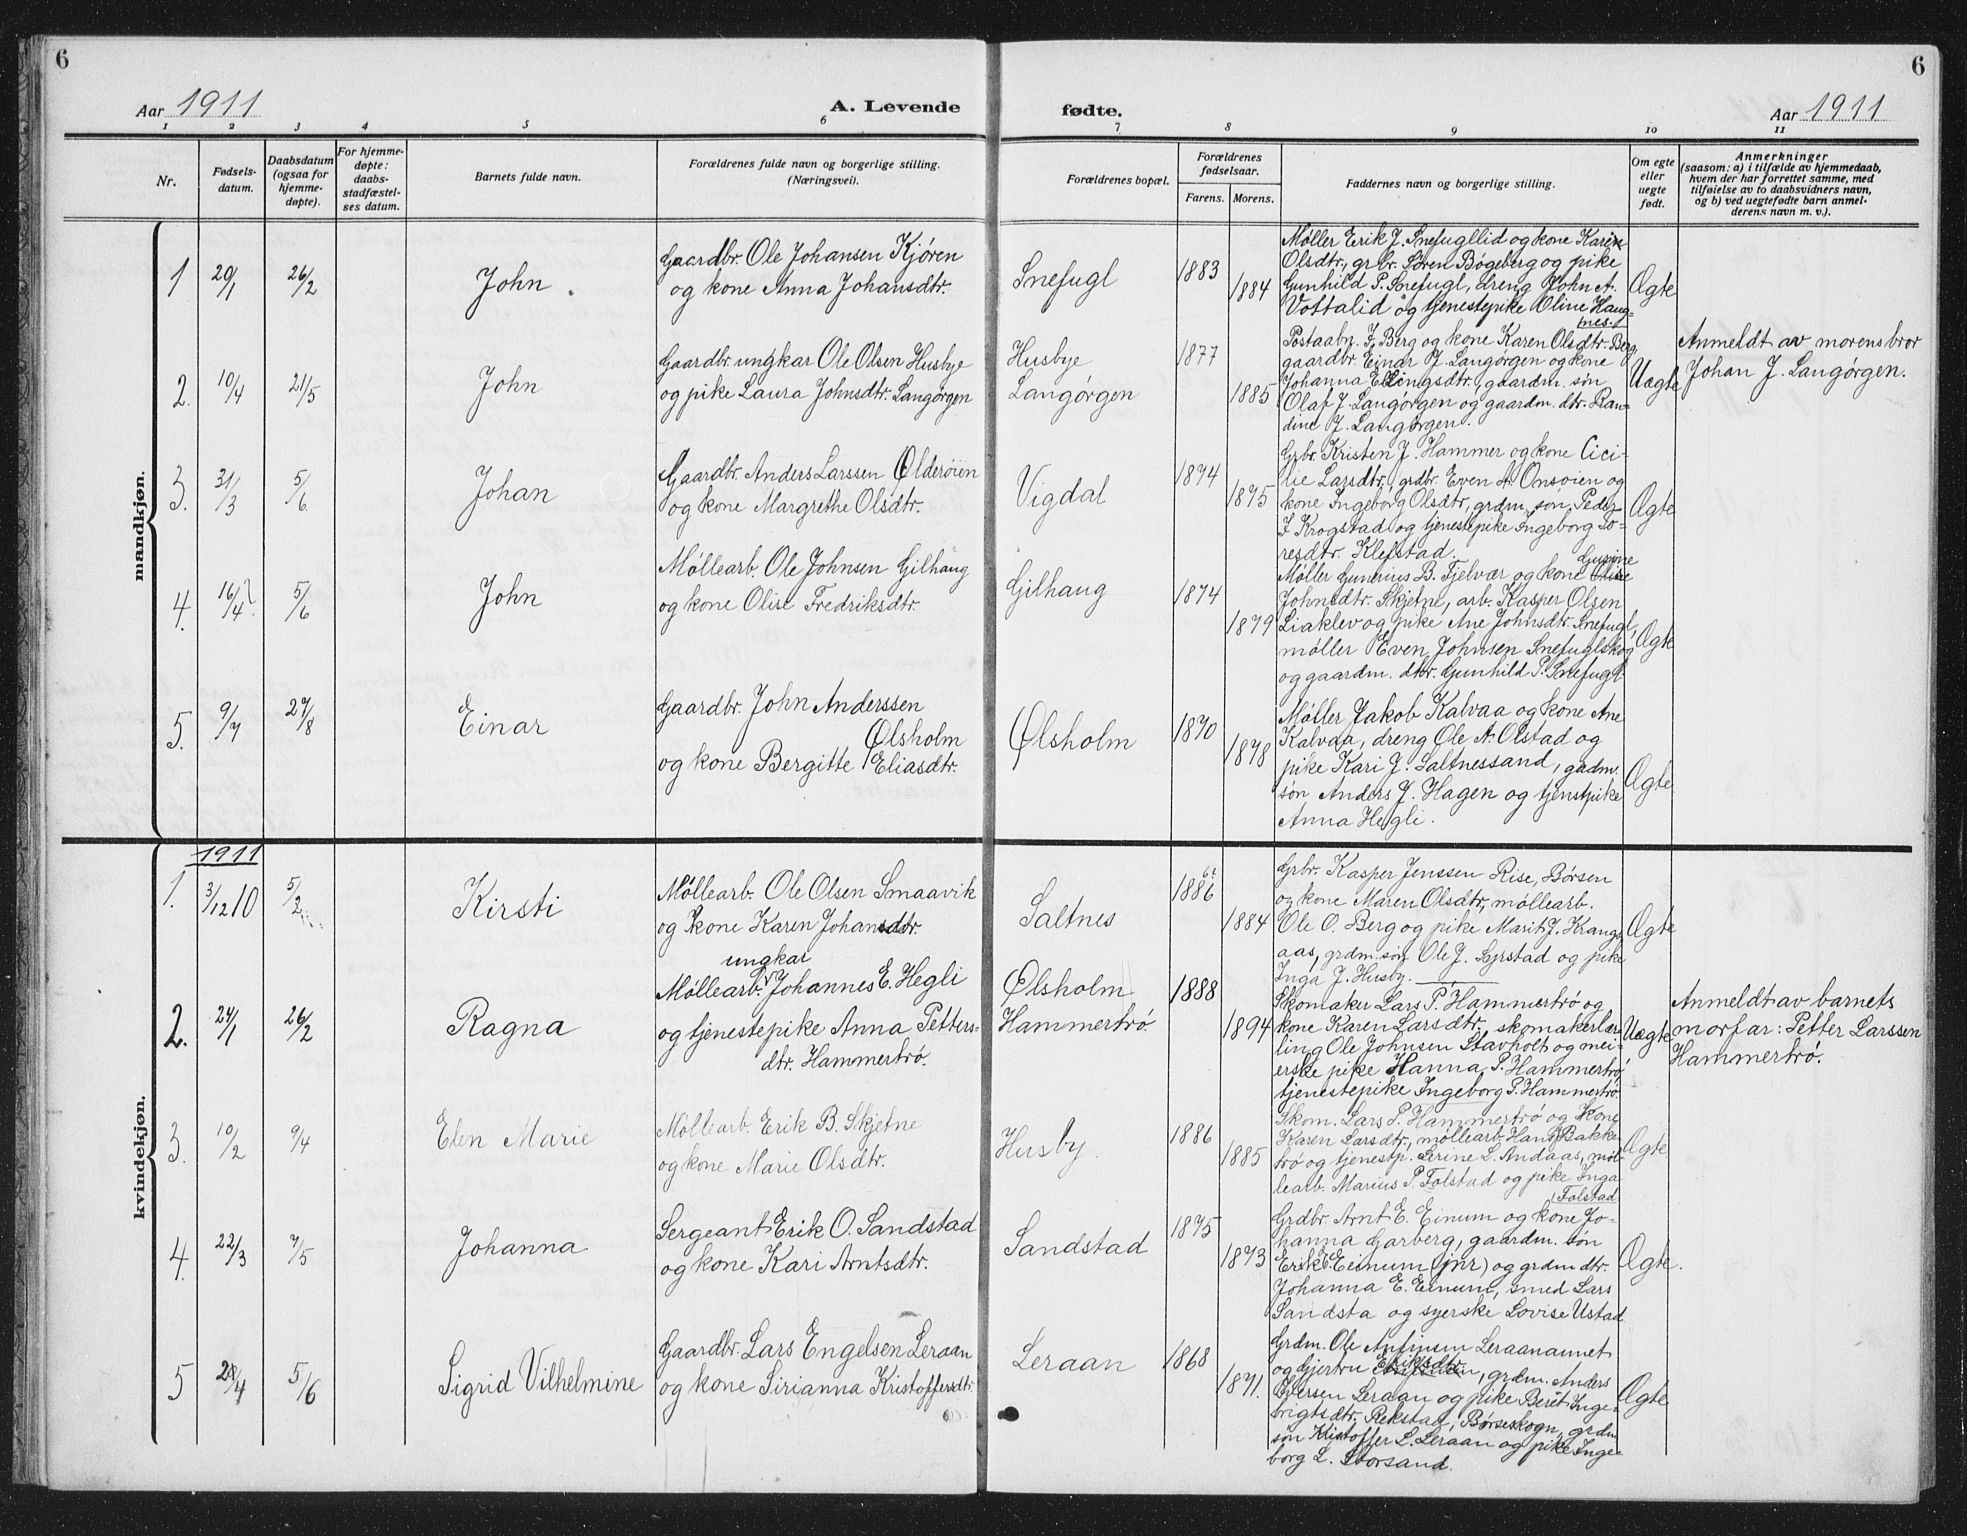 6
6
Aar 1911
A. Levende
fødte.
Aar 1911
1 2 3 4 5 6 7 8 9 10 11
Nr.
Fødsels-
datum.
Daabsdatum
(ogsaa for
hjemme-
døpte).
For hjemme-
døpte:
daabs-
stadfæstel-
ses datum.
Barnets fulde navn.
Forældrenes fulde navn og borgerlige stilling.
(Næringsvei).
Forældrenes bopæl.
Forældrenes
fødselsaar.
Farens. Morens.
Faddernes navn og borgerlige stilling.
Om egte
eller
uegte
født.
Anmerkninger
(saasom: a) i tilfælde av hjemmedaab,
hvem der har forrettet samme, med
tilføielse av to daabsvidners navn,
og b) ved uegtefødte barn anmel-
derens navn m. v.).
mandkjøn.
1 20/1 26/2 John
Gaardbr. Ole Johansen Kjøren
og kone Anna Johansdtr.
Snefugl
1883
1884
Møller Erik J. Snefugllid og kone Karen
Olsdtr., gr.br. Søren Bøgeberg og pike
Gunhild P. Snefugl, dreng John A.
Vottalid og tjenestepike Oline Haug-
nes.
Ægte
2. 10/4 21/5 John
Gaardbr. ungkar Ole Olsen Husbye
og pike Laura Johnsdtr. Langørgen
Husbye
Langørgen
1877
1885
Postaabn. J. Berg og kone Karen Olsdtr. Berg,
gaardbr. Einar J. Langørgen og kone
Johanna Ellingsdtr., gaardm. søn
Olaf J. Langørgen og gaardm. dtr. Ran-
dine J. Langørgen.
Uægte
Anmeldt av morens bror
Johan J. Langørgen.
3. 31/3 5/6 Johan
Gaardbr. Anders Larssen Olderøien
og kone Margrethe Olsdtr.
Vigdal
1874
1875
Grbr. Kristen J. Hammer og kone Cici-
lie Larsdtr., grdbr. Even A. Onsøien og
kone Ingeborg Olsdtr., grdm. søn Peder
J. Krogstad og tjenestepike Ingeborg To-
resdtr. Klefstad.
Ægte
4. 16/4 5/6 John
Møllearb. Ole Johnsen Gilhaug
og kone Olise Fredriksdtr.
Gilhaug
1874
1879
Møller Gunerius B. Fjelvær og kone
Johnsdtr. Skjetne, arb. Kasper Olsen
Liaklev og pike Ane Johnsdtr. Snefugl,
møller Even Johnsen Snefuglskog
og gaardm. dtr. Gunhild P. Snefugl.
Ægte
5. 9/7 27/8 Einar
Gaardbr. John Anderssen
Ølsholm
og kone Bergitte Eliasdtr.
Ølsholm
1870
1878
Møller Jakob Kalvaa og kone Ane
Kalvaa, dreng Ole A. Olstad og
pike Kari J. Saltnessand, gadm.
søn Anders J. Hagen og tjenstpike
Anna Hegli.
Ægte
kvindekjøn.
1911
1. 3/12 10 5/2 Kirsti
Møllearb. Ole Olsen Smaavik
og kone Karen Johansdtr.
Saltnes
1886
1884
Grbr. Kasper Jenssen Rise, Børsen
og kone Maren Olsdtr., møllearb.
Ole O. Berg og pike Marit J. Krangs-
aas, grdm. søn Ole J. Lyrstad og pike
Inga J. Husby.
Ægte
2. 24/1 26/2 Ragna
ungkar
Møllearb. Johannes E. Hegli
og tjenestepike Anna Petters-
dtr. Hammertrø.
Ølsholm
Hammertrø
1888
1894
Skomaker Lars P. Hammertrø og
kone Karen Larsdtr., skomakerlær-
ling Ole Johnsen Stavholt og mei-
erske pike Hanna P. Hammertrø,
tjenestepike Ingeborg P. Hammertrø.
Uægte
Anmeldt av barnets
morfar: Petter Larssen
Hammertrø.
3. 10/2 9/4 Elen Marie
Møllearb. Erik B. Skjetne
og kone Marie Olsdtr.
Husby.
1886
1885
Skom. Lars P. Hammertrø og kone
Karen Larsdtr., møllearb. Hans Bakke-
trø og tjenestp. Serine L. Andaas, møl-
learb. Marius P. Folstad og pike Inga
Folstad
Ægte
4. 22/3 7/5 Johanna
Sergeant Erik O. Sandstad
og kone Kari Arntsdtr.
Sandstad
1875
1873
Grdbr. Arnt E. Einum og kone Jo-
hanna Garberg, gaardm. søn
Erik E. Einum (jnr) og grdm dtr.
Johanna E. Einum, smed Lars
Sandsta og syerske Lovise Ustad
Ægte.
5 4 5/6 Sigrid Vilhelmine
Gaardbr. Lars Engelsen Leraan
og kone Sirianna Kristoffersdtr.
Leraan
1868
1871.
Grdm. Ole Anfinsen Leraanaunet
og Gjertru Eriksdtr., grdm. Anders
Iversen Leraan og pike Beret Inge-
brigtsdtr. Rekstad, Børseskogn, grdm
søn Kristoffer L. Leraan og pike Inge-
borg L. Storsand.
Ægte